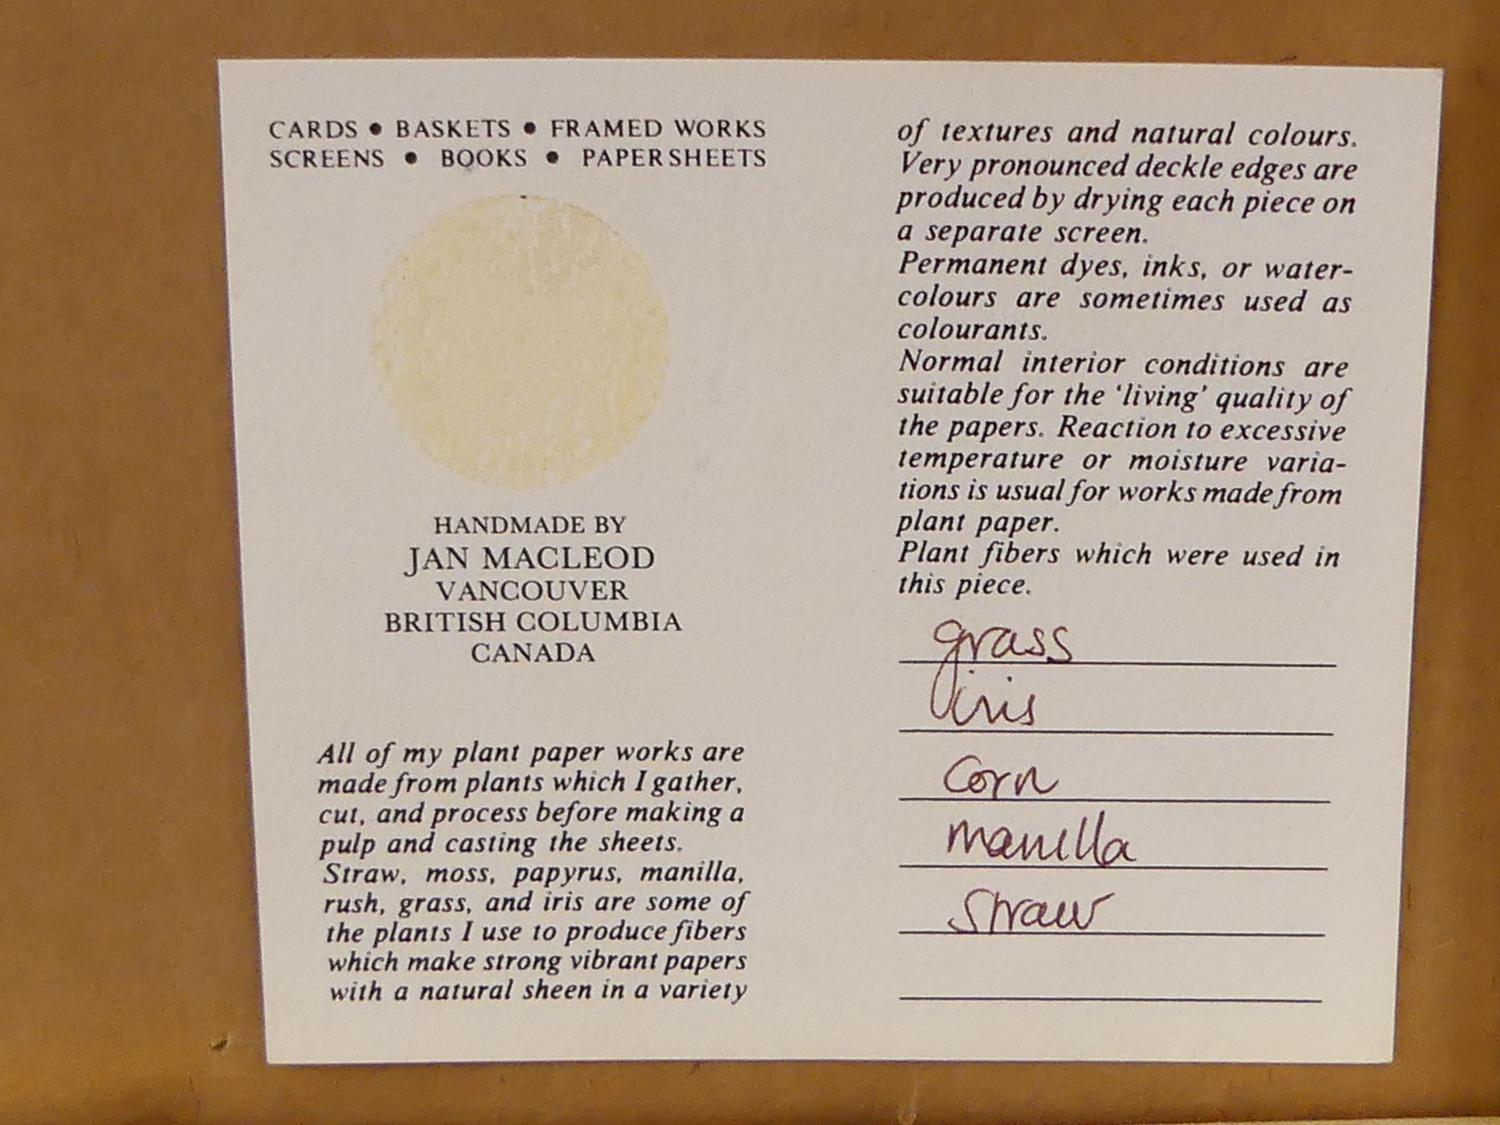 CARDS • BASKETS • FRAMED WORKS
SCREENS • BOOKS • PAPERSHEETS
HANDMADE BY
JAN MACLEOD
VANCOUVER
BRITISH COLUMBIA
CANADA
All of my plant paper works are
made from plants which I gather,
cut, and process before making a
pulp and casting the sheets.
Straw, moss, papyrus, manilla,
rush, grass, and iris are some of
the plants I use to produce fibers
which make strong vibrant papers
with a natural sheen in a variety
of textures and natural colours.
Very pronounced deckle edges are
produced by drying each piece on
a separate screen.
Permanent dyes, inks, or water-
colours are sometimes used as
colourants.
Normal interior conditions are
suitable for the 'living' quality of
the papers. Reaction to excessive
temperature or moisture varia-
tions is usual for works made from
plant paper.
Plant fibers which were used in
this piece.
grass
iris
corn
manilla
straw